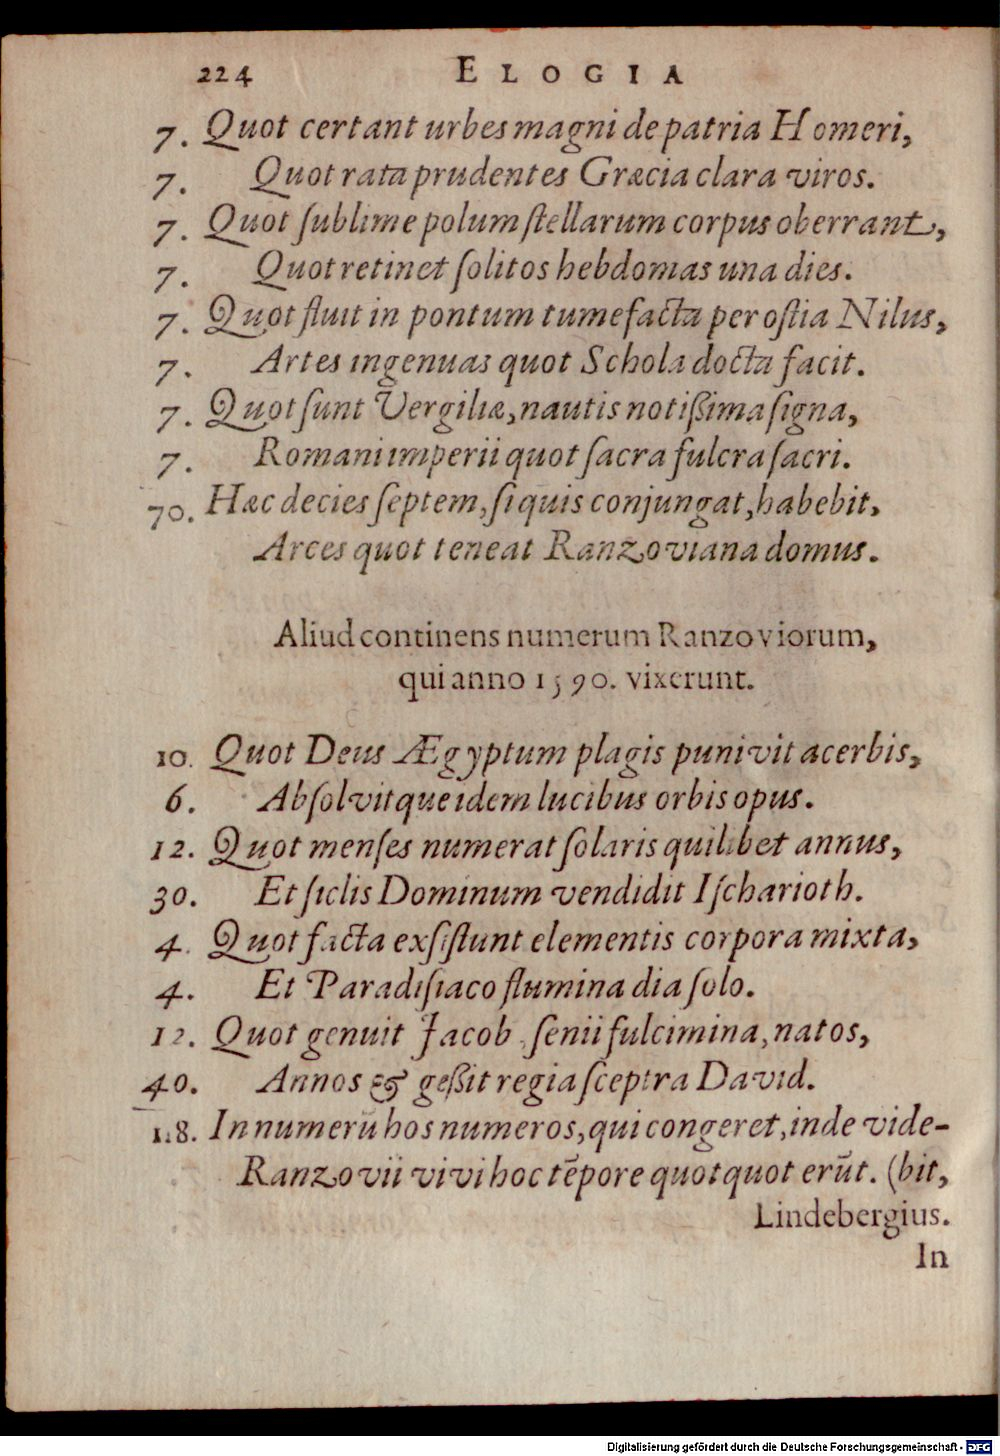 224 ELOGIA
7. Quot certant urbes magni de patria Homeri,
7. Quot rata prudentes Græcia clara viros.
7. Quot ſublime polum ſtellarum corpus oberrant,
7. Quot retinet ſolitos hebdomas una dies.
7. Quot fluit in pontum tumefacta per oſtia Nilus,
7. Artes ingenuas quot Schola docta facit.
7. Quot ſunt Vergiliæ, nautis notißima ſigna,
7. Romani imperii quot ſacra fulcra ſacri.
70. Hæc decies ſeptem, ſi quis conjungat, habebit,
Arces quot teneat Ranzoviana domus.
Aliud continens numerum Ranzoviorum,
qui anno 1590. vixerunt.
10. Quot Deus Ægyptum plagis punivit acerbis,
6. Abſolvitque idem lucibus orbis opus.
12. Quot menſes numerat ſolaris quilibet annus,
30. Et ſiclis Dominum vendidit Iſcharioth.
4. Quot facta exſiſtunt elementis corpora mixta,
4. Et Paradiſiaco flumina dia ſolo.
12. Quot genuit Jacob, ſenii fulcimina, natos,
40. Annos & geßit regia ſceptra David.
118. In numerū hos numeros, qui congeret, inde vide-
Ranzovii vivi hoc tēpore quotquot erūt. (bit,
Lindebergius.
In
Digitalisierung gefördert durch die Deutsche Forschungsgemeinschaft - DFG